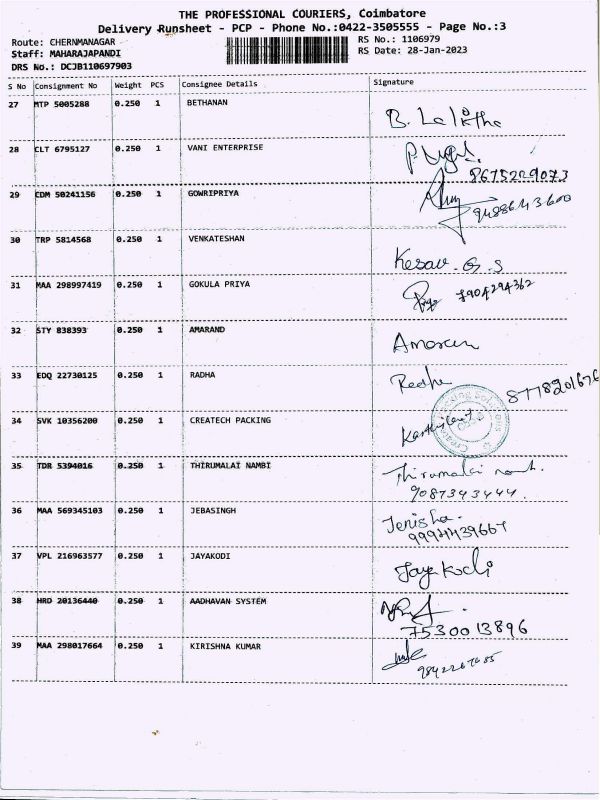 THE PROFESSIONAL COURIERS, Coimbatore
Delivery Runsheet - PCP - Phone No.:0422-3505555 - Page No.:3
Route: CHERNMANAGAR RS No.: 1106979
Staff: MAHARAJAPANDI RS Date: 28-Jan-2023
DRS No.: DCJB110697903
S No Consignment No Weight PCS Consignee Details Signature
27 MTP 5005288 0.250 1 BETHANAN
B. Lalitha
28 CLT 6795127 0.250 1 VANI ENTERPRISE
8675229073
29 CDM 50241156 0.250 1 GOWRIPRIYA
9488643600
30 TRP 5814568 0.250 1 VENKATESHAN
Kesav. G. S
31 MAA 298997419 0.250 1 GOKULA PRIYA
7904294362
32 STY 838393 0.250 1 AMARAND
33 EDQ 22730125 0.250 1 RADHA
Radha
8778201676
34 SVK 10356200 0.250 1 CREATECH PACKING
35 TDR 5394016 0.250 1 THIRUMALAI NAMBI
Thirumalai
9087343444.
36 MAA 569345103 0.250 1 JEBASINGH
Jenisha.
9994439667
37 VPL 216963577 0.250 1 JAYAKODI
Jayakodi
38 HRD 20136440 0.250 1 AADHAVAN SYSTEM
7530013896
39 MAA 298017664 0.250 1 KIRISHNA KUMAR